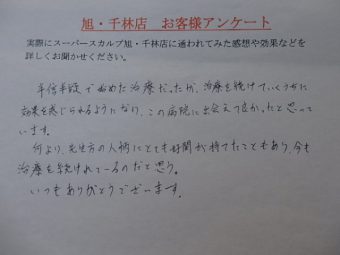 旭・千林店 お客様アンケート
実際にスーパースカルプ旭・千林店に通われてみた感想や効果などを
詳しくお聞かせください。
半信半疑で始めた治療だったが、治療を続けていくうちに
効果を感じられるようになり、この病院に出会えて良かったと思って
います。
何より、先生方の人柄にとても好間が持てたこともあり、今も
治療を続けれているのだと思う。
いつもありがとうございます。